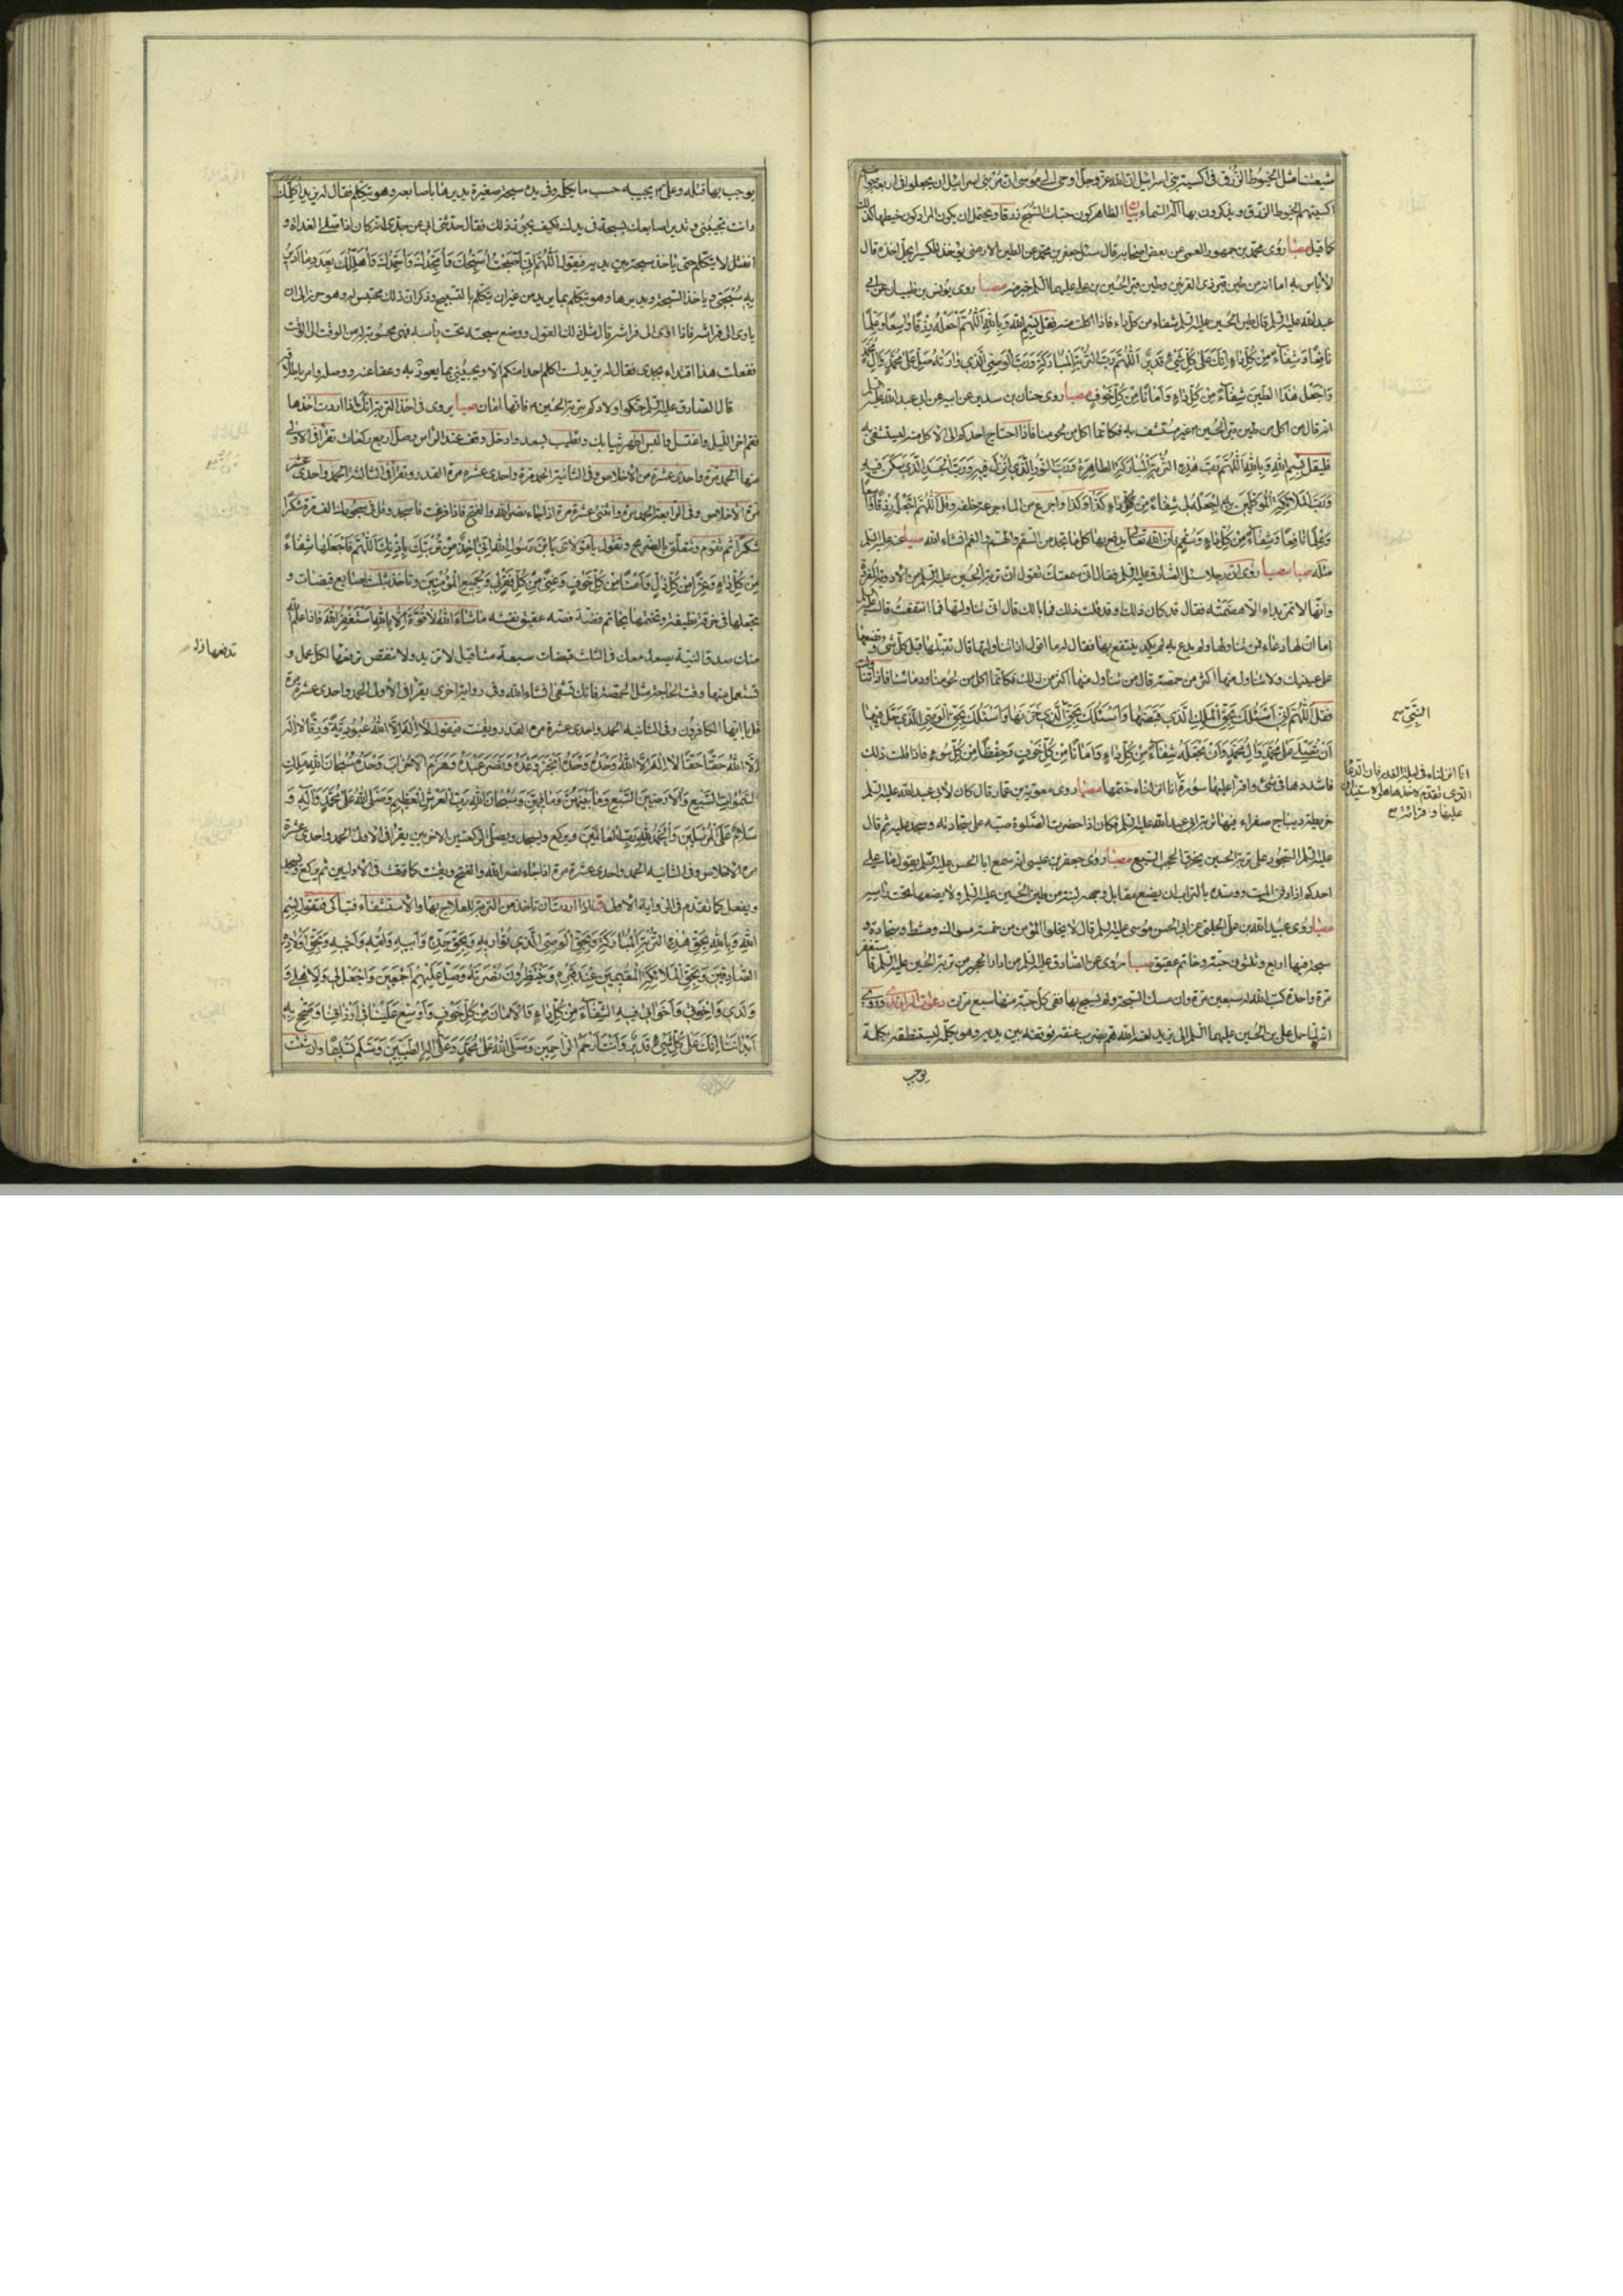 شيعتنا مثل الخيوط الزرق في اكسية بني اسرائيل ان الله عز وجل اوحى الى موسى ان مر بني اسرائيل ان يجعلوا في اربعة جوانب
اكسيتهم الخيوط الزرق ويذكرون بها اله السماء بيان الظاهر كون حبات السبح زرقا ويحتمل ان يكون المراد كون خيطها كذلك
كما قيل مصبا روى محمد بن جمهور العمي عن بعض اصحابه قال سئل جعفر بن محمد عن الطين الارمني يؤخذ للكسير ايحل اخذه قال
لا بأس به اما انه من طين قبر ذي القرنين وطين قبر الحسين بن علي عليهما السلم خير منه مصبا روى يونس بن ظبيان عن ابي
عبد الله عليه السلم قال طين الحسين عليه السلم شفاء من كل داء فاذا اكلت منه فقل بسم الله وبالله اللهم اجعله رزقا واسعا وعلما
نافعا وشفاء من كل داء انك على كل شيء قدير اللهم رب التربة المباركة ورب الوصي الذي وارته صل على محمد وال محمد
واجعل هذا الطين شفاء من كل داء وامانا من كل خوف مصبا روى حنان بن سدير عن ابيه عن ابي عبد الله عليه السلم
انه قال من اكل من طين قبر الحسين ع غير مستشف به فكانما اكل من لحومنا فاذا احتاج احدكم الى الاكل منه ليستشفي به
فليقل بسم الله وبالله اللهم رب هذه التربة المباركة الطاهرة ورب النور الذي انزل فيه ورب الجسد الذي سكن فيه
ورب الملائكة الموكلين به اجعله لي شفاء من داء كذا وكذا واجرع من الماء جرعة خلفه وقل اللهم اجعله رزقا واسعا
وعلما نافعا وشفاء من كل داء وسقم فان الله تعالى يدفع بها كل ما تجد من السقم والهم والغم انشاء الله
مثله مصبا روى ان رجلا سئل الصادق عليه السلم فقال اني سمعتك تقول ان تربة الحسين عليه السلم من الادوية المفردة
وانها لا تمر بداء الا هضمته فقال قد كان ذلك وقد قلت ذلك فما بالك قال اني تناولتها فما انتفعت قال عليه السلم
اما ان لها دعاء فمن تناولها ولم يدع به لم يكد ينتفع بها فقال له ما اقول اذا تناولتها قال تقبلها قبل كل شيء وتضعها
على عينيك ولا تناول منها اكثر من حمصة فان من تناول منها اكثر من ذلك فكانما اكل من لحومنا ودمائنا فاذا تناولت
فقل اللهم اني اسئلك بحق الملك الذي قبضها واسئلك بحق الذي خزنها واسئلك بحق الوصي الذي حل فيها
ان تصلي على محمد وال محمد وان تجعله شفاء من كل داء وامانا من كل خوف وحفظا من كل سوء فاذا قلت ذلك
فاشددها في شيء واقرأ عليها سورة انا انزلناه ختمها مصبا روى معوية بن عمار قال كان لابي عبد الله عليه السلم
خريطة ديباج صفراء فيها تربة ابي عبد الله عليه السلم فكان اذا حضرت الصلوة صبه على سجادته وسجد عليه ثم قال
عليه السلم السجود على تربة الحسين يخرق الحجب السبع مصبا روى جعفر بن عيسى انه سمع ابا الحسن عليه السلم يقول ما على
احدكم اذا دفن الميت ووسده بالتراب ان يضع مقابل وجهه لبنة من طين الحسين عليه السلم ولا يضعها تحت رأسه
مصبا روى عبيد الله بن علي الحلبي عن ابي الحسن موسى عليه السلم قال لا يخلوا المؤمن من خمسة مسواك ومشط وسجادة و
سبحة فيها اربع وثلثون حبة وخاتم عقيق مصبا روى عن الصادق عليه السلم من ادار الحجر من تربة الحسين عليه السلم فاستغفر
مرة واحدة كتب الله له سبعين مرة وان مسك السبحة ولم يسبح بها ففي كل حبة منها سبع مرات دعوات الراوندي وروى
انه لما حمل علي بن الحسين عليهما السلم الى يزيد لعنه الله هم بضرب عنقه فوقفه بين يديه وهو يكلمه ليستنطقه بكلمة
يوجب
النبي
انا انزلناه في ليلة القدر فان الدعاء
الذي تقدم لاخذها هو الاستيذان
عليها وقرائة
يوجب بها قتله وعلي ع يجيبه حسب ما يكلمه وفي يده سبحة صغيرة يديرها باصابعه وهو يتكلم فقال له يزيد اكلمك
وانت تجيبني وتدير اصابعك بسبحة في يدك فكيف يجوز ذلك فقال حدثني ابي عن جدي انه كان اذا صلى الغداة و
انفتل لا يتكلم حتى ياخذ سبحة بين يديه فيقول اللهم اني اصبحت اسبحك وامجدك واحمدك واهللك بعدد ما ادير
به سبحتي وياخذ السبحة ويديرها وهو يتكلم بما يريد من غير ان يتكلم بالتسبيح وذكر ان ذلك محتسب له وهو حرز الى ان
ياوى الى فراشه فاذا اوى الى فراشه قال مثل ذلك القول ووضع سبحته تحت رأسه فهي محسوبة له من الوقت الى الوقت
ففعلت هذا اقتداء بجدي فقال له يزيد لست اكلم احدا منكم الا ويجيبني بما يعوذ به وعفا عنه ووصله وامر باطلاقه
قال الصادق عليه السلم حنكوا اولادكم بتربة الحسين ع فانها امان مصبا يروى في اخذ التربة انك اذا اردت اخذها
فقم اخر الليل واغتسل والبس اطهر ثيابك وتطيب بسعد وادخل وقف عند الراس وصل اربع ركعات تقرأ في الاولى
منها الحمد مرة واحدى عشرة مرة الاخلاص وفي الثانية الحمد مرة واحدى عشرة مرة القدر وتقرأ في الثالثة الحمد واحدى عشرة
مرة الاخلاص وفي الرابعة الحمد مرة واثنتى عشرة مرة اذا جاء نصر الله والفتح فاذا فرغت فاسجد وقل في سجودك الف مرة شكرا
شكرا ثم تقوم وتتعلق بالضريح وتقول يا مولاي يا ابن رسول الله اني اخذ من تربتك باذنك اللهم فاجعلها شفاء
من كل داء وعزا من كل ذل وامنا من كل خوف وغنى من كل فقر لي ولجميع المؤمنين وتاخذ بثلث اصابع قبضات و
تجعلها في خرقة نظيفة وتختمها بخاتم فضة فصه عقيق نقشه ما شاء الله لا قوة الا بالله استغفر الله فاذا علم الله
منك صدق النية يصعد معك في الثلث قبضات سبعة مثاقيل لا تزيد ولا تنقص ترفعها لكل عمل و
تستعمل منها وقت الحاجة مثل الحمصة فانك تشفى انشاء الله وفي رواية اخرى يقرأ في الاولى الحمد واحدى عشرة مرة
قل يا ايها الكافرون وفي الثانيه الحمد واحدى عشرة مرة القدر ويقنت فيقول لا اله الا الله عبودية ورقا لا اله
الا الله حقا حقا لا اله الا الله وحده وحده انجز وعده ونصر عبده وهزم الاحزاب وحده سبحان الله ملك
السموات السبع والارضين السبع وما بينهن وما فيهن وسبحان الله رب العرش العظيم وصلى الله على محمد وآله و
سلام على المرسلين والحمد لله رب العالمين ويركع ويسجد ويصلي الركعتين الاخريين يقرأ في الاولى الحمد واحدى عشرة
مرة الاخلاص وفي الثانيه الحمد واحدى عشرة مرة اذا جاء نصر الله والفتح ويقنت كما قنت في الاوليين ثم يركع ويسجد
ويفعل كما تقدم في الرواية الاولى اذا اردت ان تاخذ من التربة للعلاج بها والاستشفاء فتباكى وتقول بسم
الله وبالله بحق هذه التربة المباركة وبحق الوصي الذي تواريه وبحق جده وابيه وامه واخيه وبحق اولاده
الصادقين وبحق الملائكة المقيمين عند قبره ينتظرون نصرته صل عليهم اجمعين واجعل لي ولاهلي و
ولدي واخوتي واخواتي فيه الشفاء من كل داء والامان من كل خوف واوسع علينا في ارزاقنا وصحح به
ابداننا انك على كل شيء قدير وانت ارحم الراحمين وصلى الله على محمد وعلى اله الطيبين وسلم تسليما وان شئت